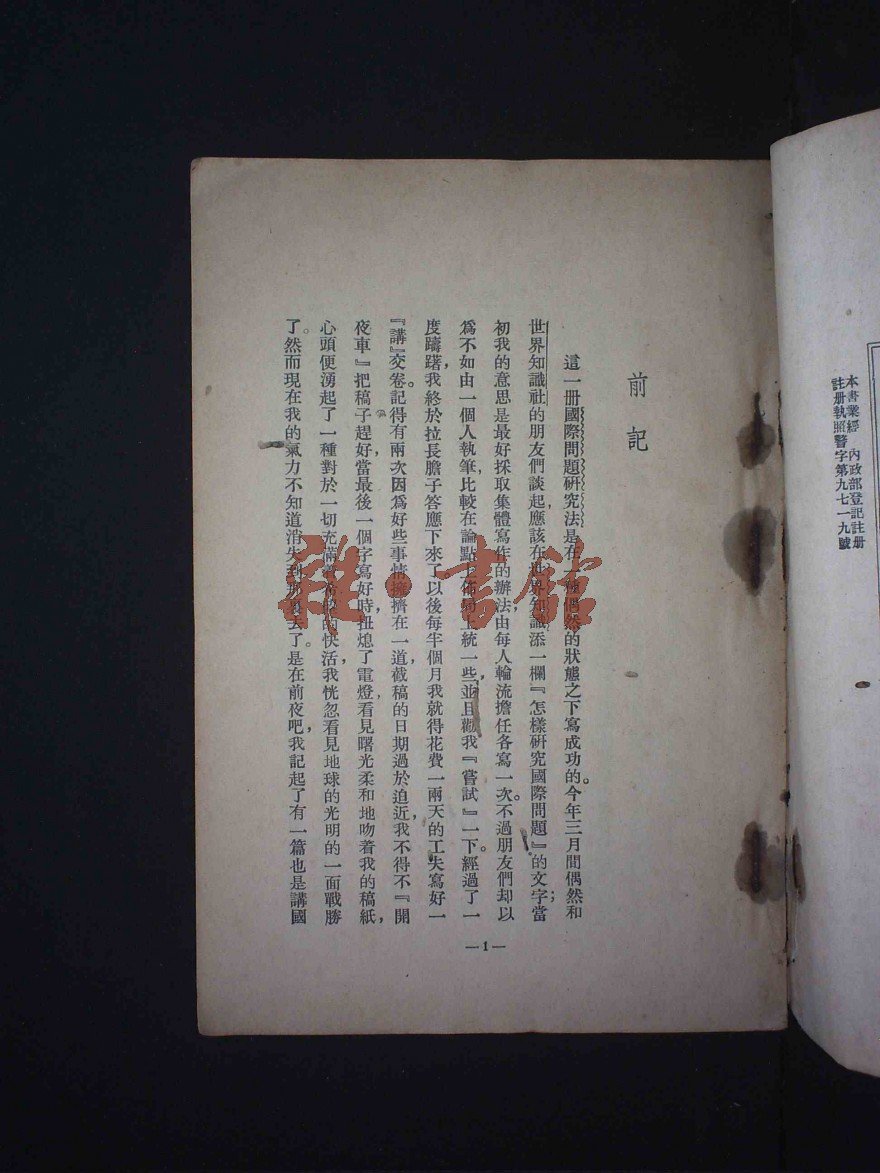 本書業經內政部登記註册
註册執照警字第九七一九號
前記
這一册國際問題研究法是在一種偶然的狀態之下寫成功的。今年三月間偶然和
世界知識社的朋友們談起，應該在世界知識添一欄『怎樣研究國際問題』的文字；當
初我的意思是最好採取集體寫作的辦法，由每人輪流擔任各寫一次。不過朋友們却以
爲不如由一個人執筆，比較在論點上佈局上統一些，並且勸我『嘗試』一下。經過了一
度躊躇，我終於拉長膽子答應下來了以後每半個月我就得花費一兩天的工夫寫好一
『講』交卷。記得有兩次因爲好些事情擁擠在一道，截稿的日期過於迫近，我不得不『開
夜車』把稿子趕好，當最後一個字寫好時，扭熄了電燈看見曙光柔和地吻着我的稿紙，
心頭便湧起了一種對於一切充滿着的快活，我恍忽看見地球的光明的一面戰勝
了。然而現在我的氣力不知道消失到那裏去了。是在前夜吧，我記起了有一篇也是講國
—1—
雜·書館